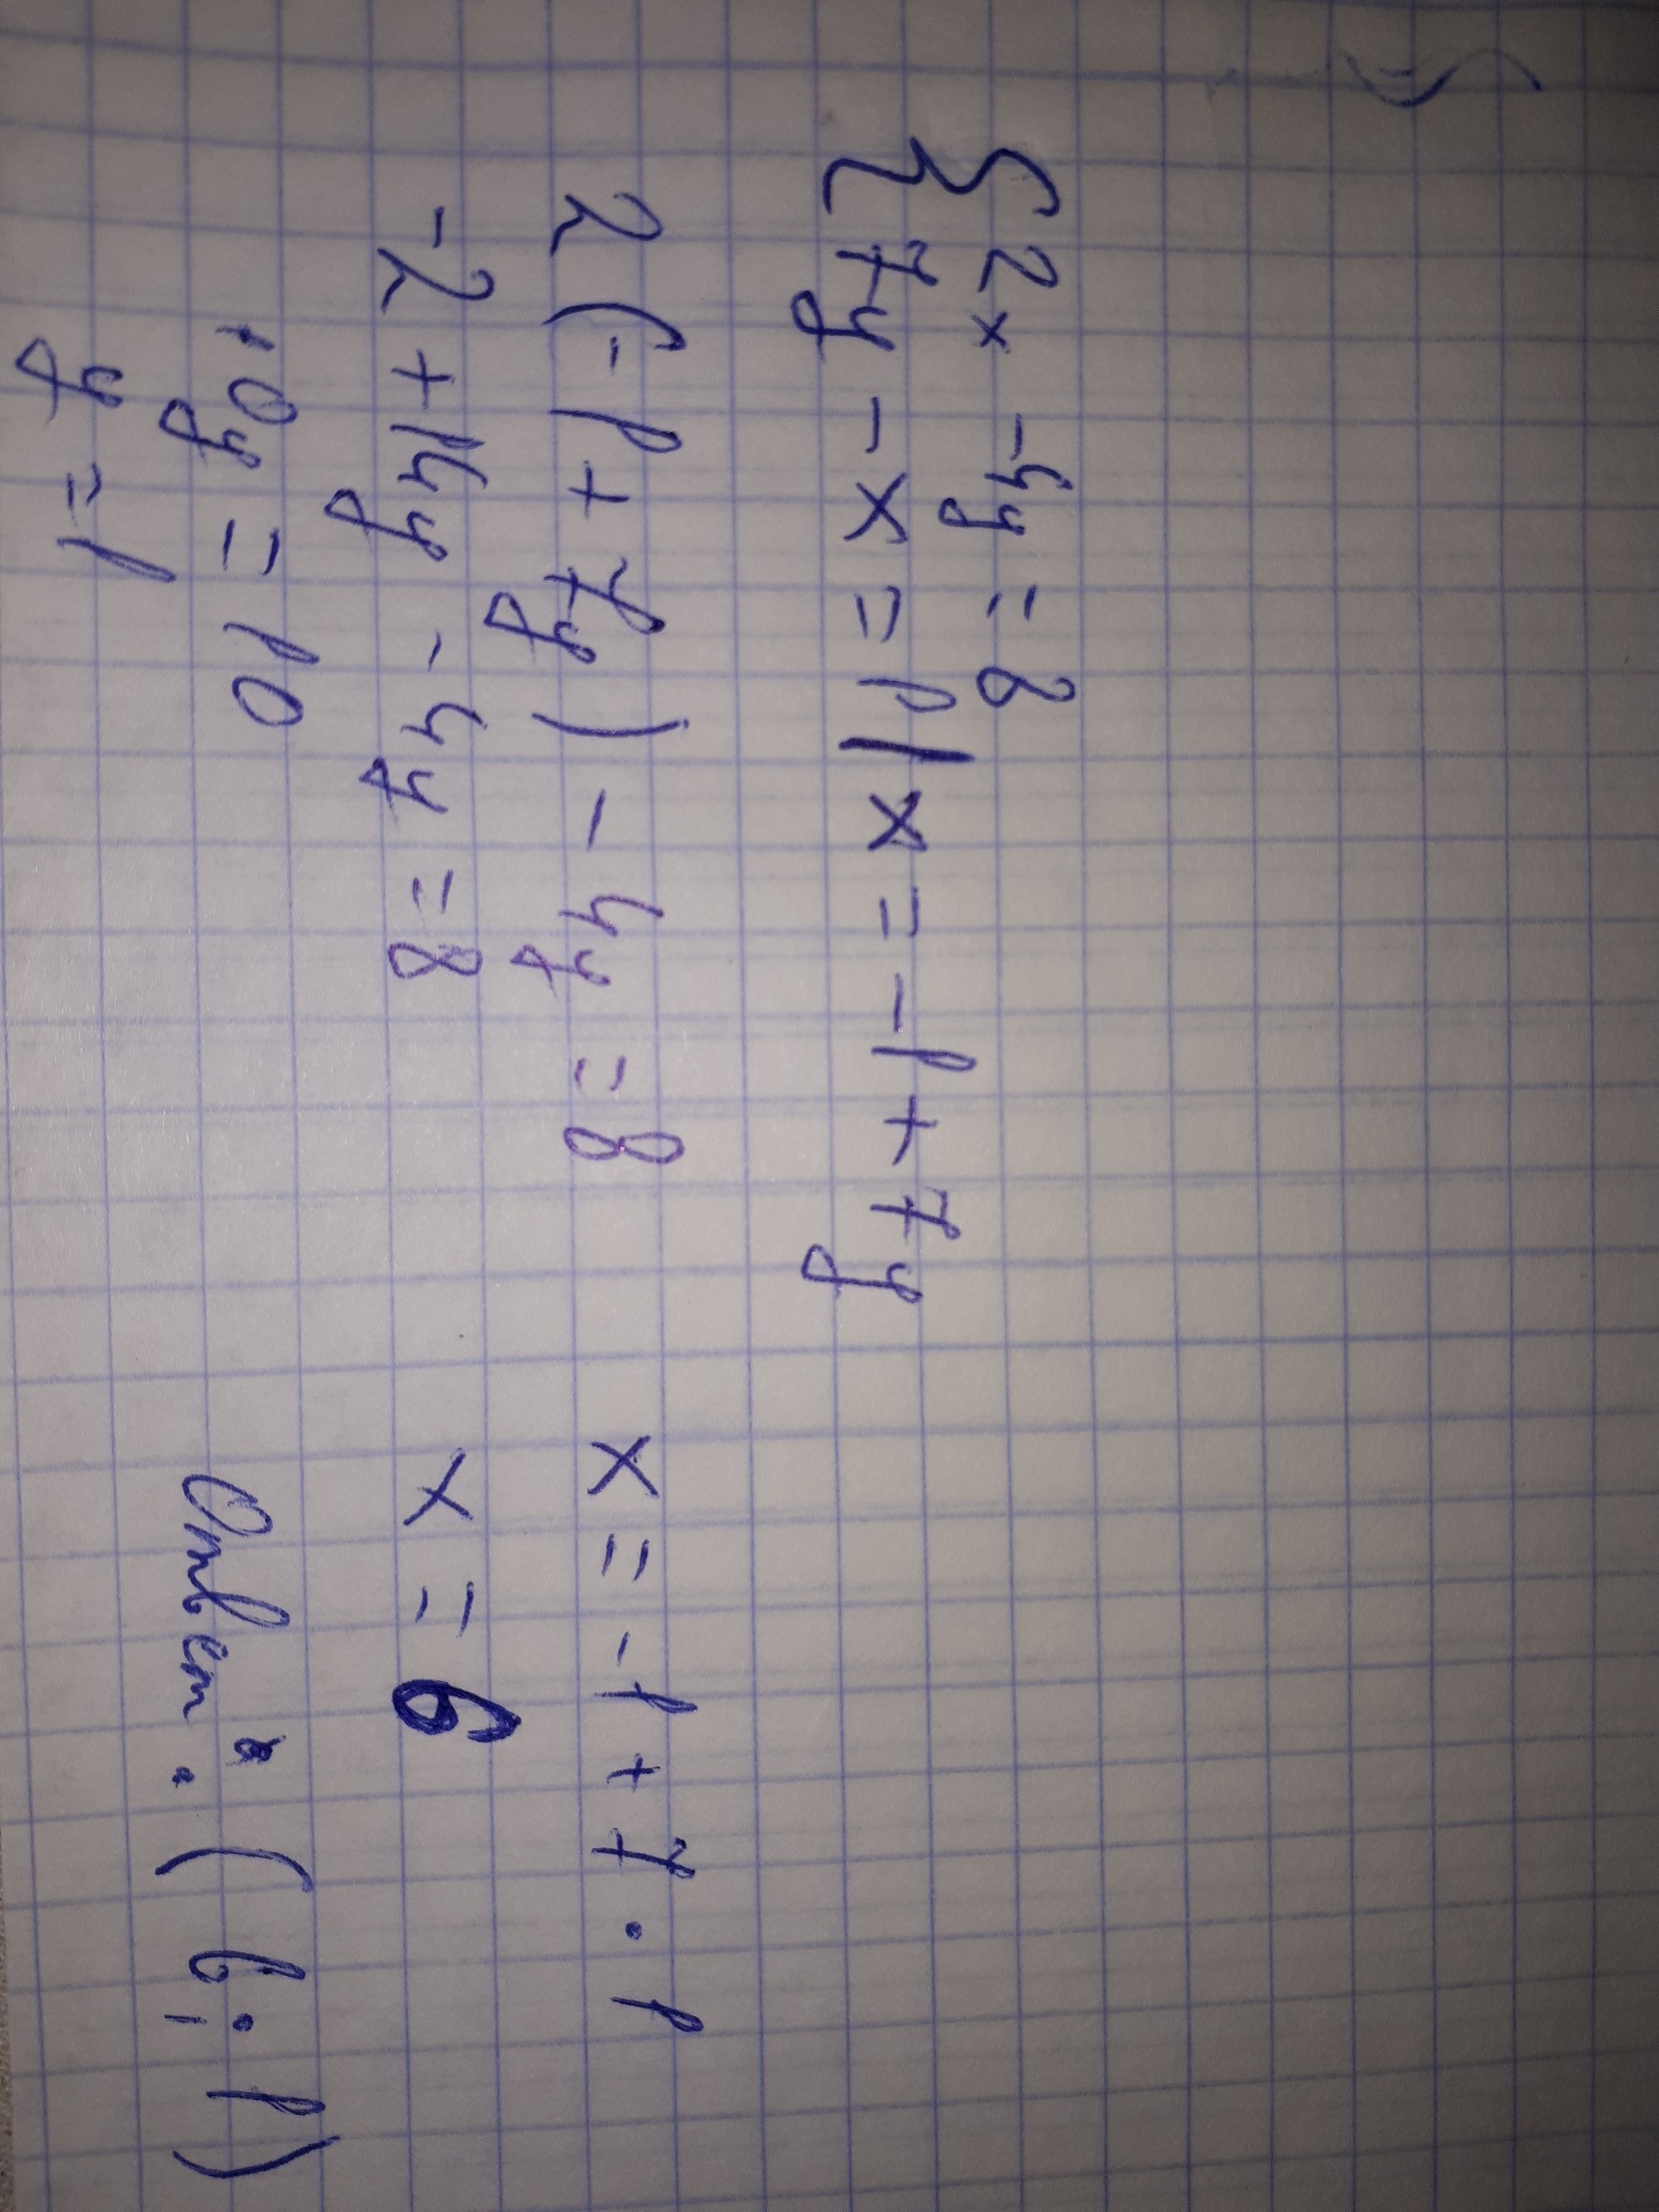 { 2x - 4y = 8
7y - x = 1 | x = -1 + 7y
2 (-1 + 7y) - 4y = 8
x = -1 + 7 · 1
-2 + 14y - 4y = 8
x = 6
10y = 10
Ответ: (6; 1)
y = 1